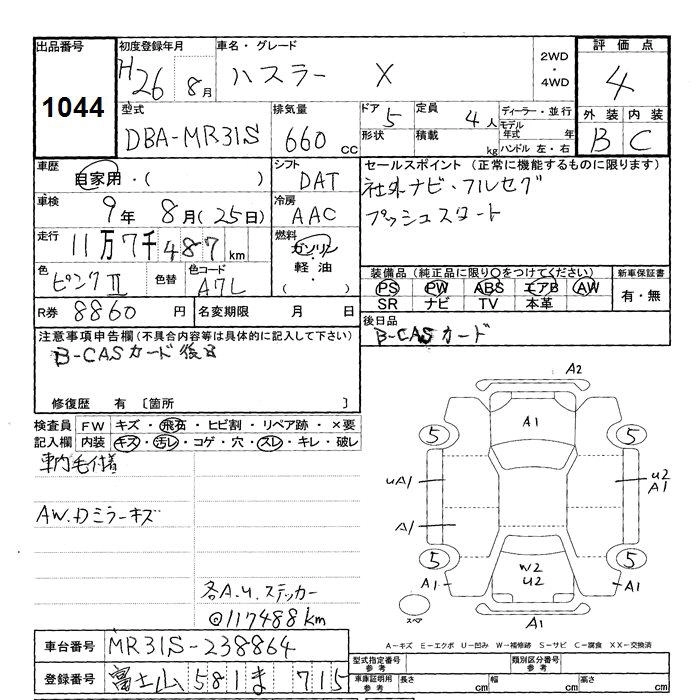 出品番号 1044
初度登録年月 H26年 8月
車名・グレード ハスラー X
2WD・4WD
評価点 4
型式 DBA-MR31S
排気量 660 cc
ドア 5
形状
定員 4人
積載 kg
ディーラー・並行
モデル年式 年
ハンドル 左・右
外装 B
内装 C
車歴 自家用・( )
シフト DAT
セールスポイント (正常に機能するものに限ります)
社外ナビ・フルセグ
プッシュスタート
車検 9年 8月(25日)
冷房 AAC
走行 11万7千487km
燃料 ガソリン・軽油・( )
色 ピンクII
色替
色コード A7L
装備品 (純正品に限り○をつけてください)
PS PW ABS エアB AW
SR ナビ TV 本革
新車保証書 有・無
R券 8860円
名変期限 月 日
後日品
B-CASカード
注意事項申告欄 (不具合内容等は具体的に記入して下さい)
B-CASカード後日
修復歴 有 〔箇所 〕
検査員記入欄
FW キズ・飛石・ヒビ割・リペア跡・×要
内装 キズ・汚レ・コゲ・穴・スレ・キレ・破レ
車内毛付着
AW.Dミラーキズ
各A.U.ステッカー
◎117488km
A2
A1
5 5
uA1
u2
A1
A1
5 5
W2
U2
A1 A1
スペア
A1
A-キズ E-エクボ U-凹み W-補修跡 S-サビ C-腐食 XX-交換済
車台番号 MR31S-238864
型式指定番号 参考
類別区分番号 参考
登録番号 富士山 581 ま 715
車庫証明用 参考
長さ cm 幅 cm 高さ cm